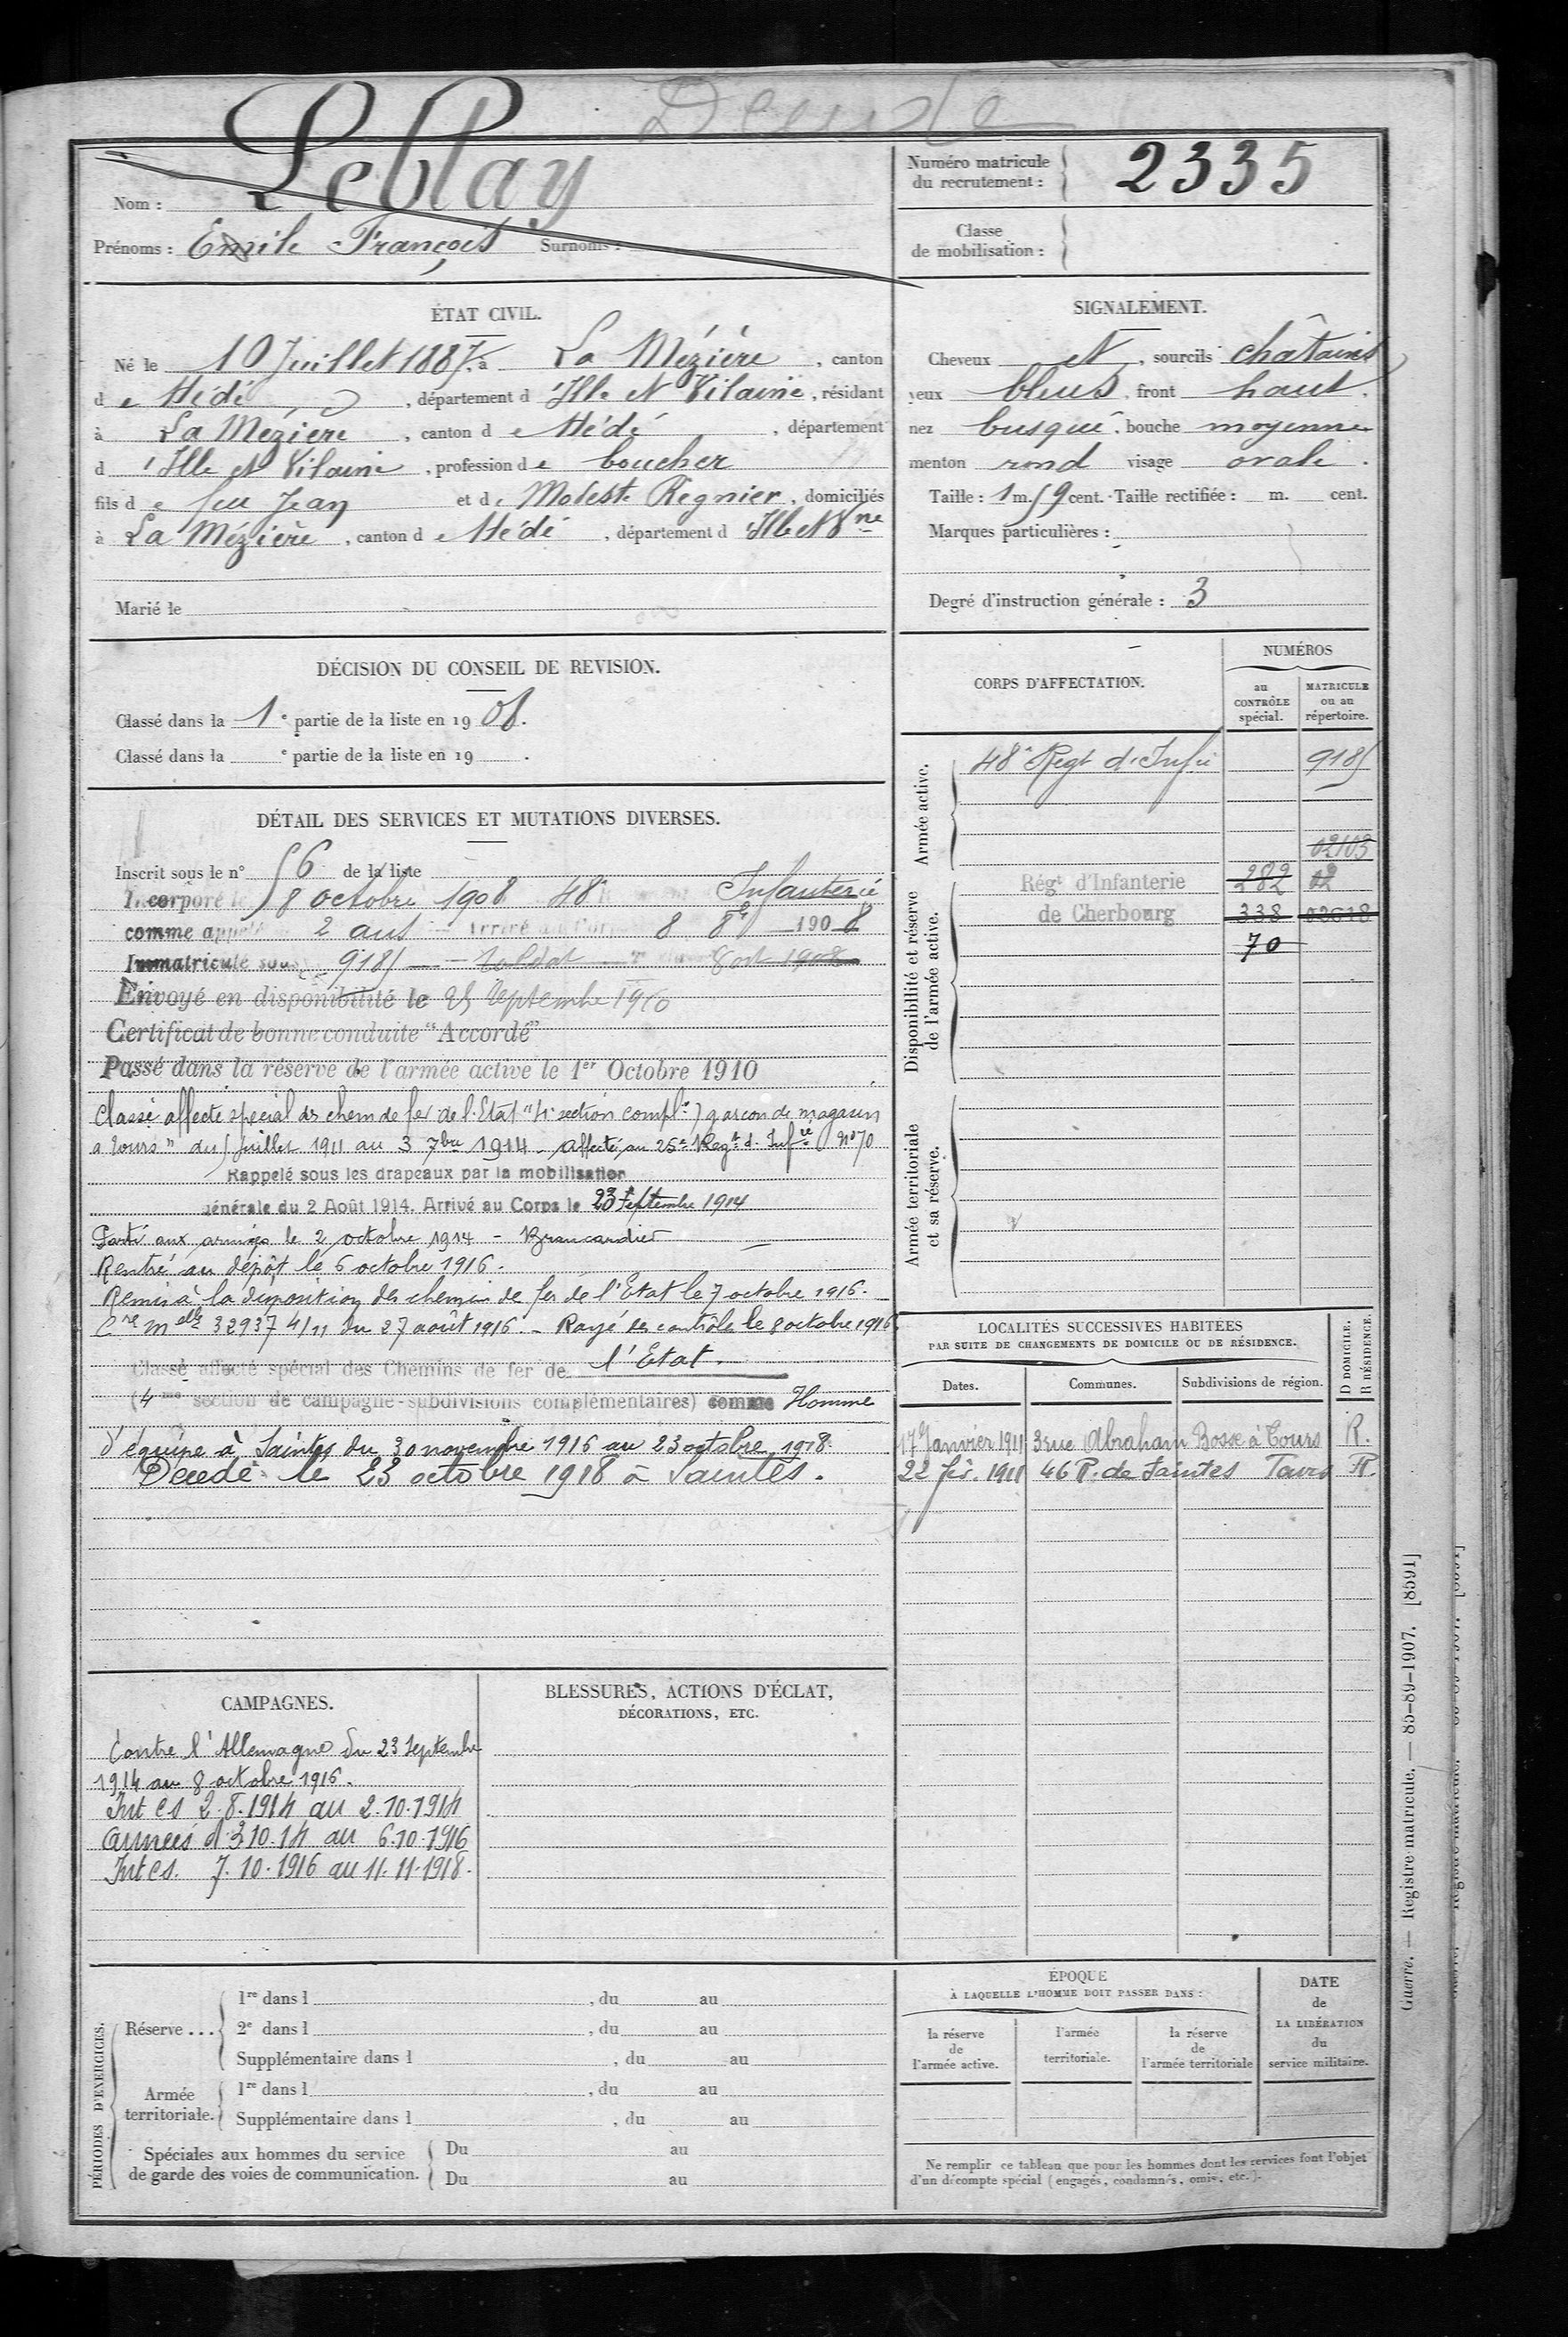 Décédé
Leblay
Nom :
Prénoms : Emile François Surnoms :
Numéro matricule
du recrutement : 2335
Classe
de mobilisation :
ÉTAT CIVIL.
Né le 10 Juillet 1887, à La Mézière, canton
de Hédé, département d'Ille et Vilaine, résidant
à La Mézière, canton de Hédé, département
d'Ille et Vilaine, profession de boucher
fils de feu Jean et de Modeste Régnier, domiciliés
à La Mézière, canton de Hédé, département d'Ille et Vne
Marié le
SIGNALEMENT.
Cheveux et, sourcils châtains
yeux bleus, front haut.
nez busqué, bouche moyenne
menton rond visage ovale.
Taille : 1 m. 59 cent. Taille rectifiée : m. cent.
Marques particulières :
Degré d'instruction générale : 3
DÉCISION DU CONSEIL DE REVISION.
Classé dans la 1e partie de la liste en 1908.
Classé dans la e partie de la liste en 19 .
DÉTAIL DES SERVICES ET MUTATIONS DIVERSES.
Inscrit sous le n° 56 de la liste
Incorporé le 8 octobre 1908 48e Infanterie
comme appelé 2 ans Arrivé au Corps 8 8bre 1908
Immatriculé sous 9185 soldat 8 oct 1908
Envoyé en disponibilité le 25 Septembre 1910
Certificat de bonne conduite "Accordé"
Passé dans la réserve de l'armée active le 1er Octobre 1910
Classé affecté spécial des chem de fer de l'Etat "4e section comple) garçon de magasin
a Tours" du 5 Juillet 1911 au 3 7bre 1914 - Affecté au 25e Regt d'Infie N°70
Rappelé sous les drapeaux par la mobilisation
générale du 2 Août 1914. Arrivé au Corps le 23 Septembre 1914
Parti aux armées le 2 octobre 1914 - Brancardier
Rentré au dépôt le 6 octobre 1916.
Remis à la disposition des chemins de fer de l'Etat le 7 octobre 1916.
Cre melle 32937 4/11 du 27 août 1916. - Rayé des contrôles le 8 octobre 1916.
Classé affecté spécial des Chemins de fer de l'Etat.
(4me section de campagne-subdivisions complémentaires) comme Homme
d'équipe à Saintes du 30 novembre 1916 au 23 octobre 1918.
Décédé le 23 octobre 1918 à Saintes.
CORPS D'AFFECTATION.
NUMÉROS
au
CONTRÔLE
spécial.
MATRICULE
ou au
répertoire.
Armée active.
48e Regt d'Infie 9185
02103
Disponibilité et réserve
de l'armée active.
Régt d'Infanterie 282 02
de Cherbourg 338 03618
70
Armée territoriale
et sa réserve.
LOCALITÉS SUCCESSIVES HABITÉES
PAR SUITE DE CHANGEMENTS DE DOMICILE OU DE RÉSIDENCE.
D DOMICILE.
R RÉSIDENCE.
Dates. Communes. Subdivisions de région.
17 Janvier 1911 3 rue Abraham Bosse à Tours R.
22 fév. 1911 46 R. de Saintes Tours R.
CAMPAGNES.
Contre l'Allemagne du 23 Septembre
1914 au 8 octobre 1916.
Int es 2.8.1914 au 2.10.1914
Armées d 3.10.14 au 6.10.1916
Int es. 7.10.1916 au 11.11.1918.
BLESSURES, ACTIONS D'ÉCLAT,
DÉCORATIONS, ETC.
PÉRIODES D'EXERCICES.
Réserve...
1re dans l , du au
2e dans l , du au
Supplémentaire dans l , du au
Armée
territoriale.
1re dans l , du au
Supplémentaire dans l , du au
Spéciales aux hommes du service
de garde des voies de communication.
Du au
Du au
ÉPOQUE
À LAQUELLE L'HOMME DOIT PASSER DANS :
la réserve
de
l'armée active.
l'armée
territoriale.
la réserve
de
l'armée territoriale
DATE
de
LA LIBÉRATION
du
service militaire.
Ne remplir ce tableau que pour les hommes dont les services font l'objet
d'un décompte spécial (engagés, condamnés, omis, etc.).
Guerre. — Registre matricule. — 85-89-1907. [8591]